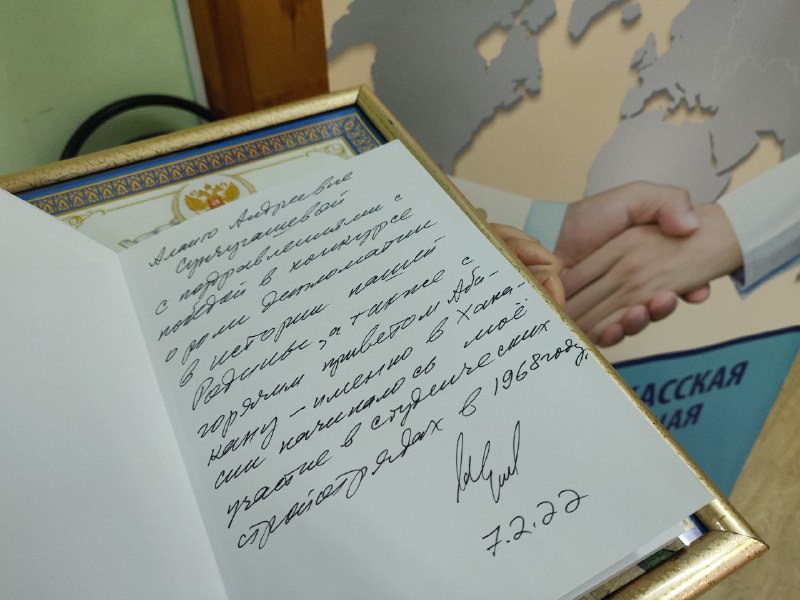 Аланто Андреевне
Сунчугашевой
с поздравлениями с
победой в конкурсе
о роли дипломатии
в истории нашей
Родины, а также с
горячим приветом Аба-
кану – именно в Хака-
сии начиналось моё
участие в студенческих
стройотрядах в 1968 году.
7.2.22
КАССКАЯ
НАЯ